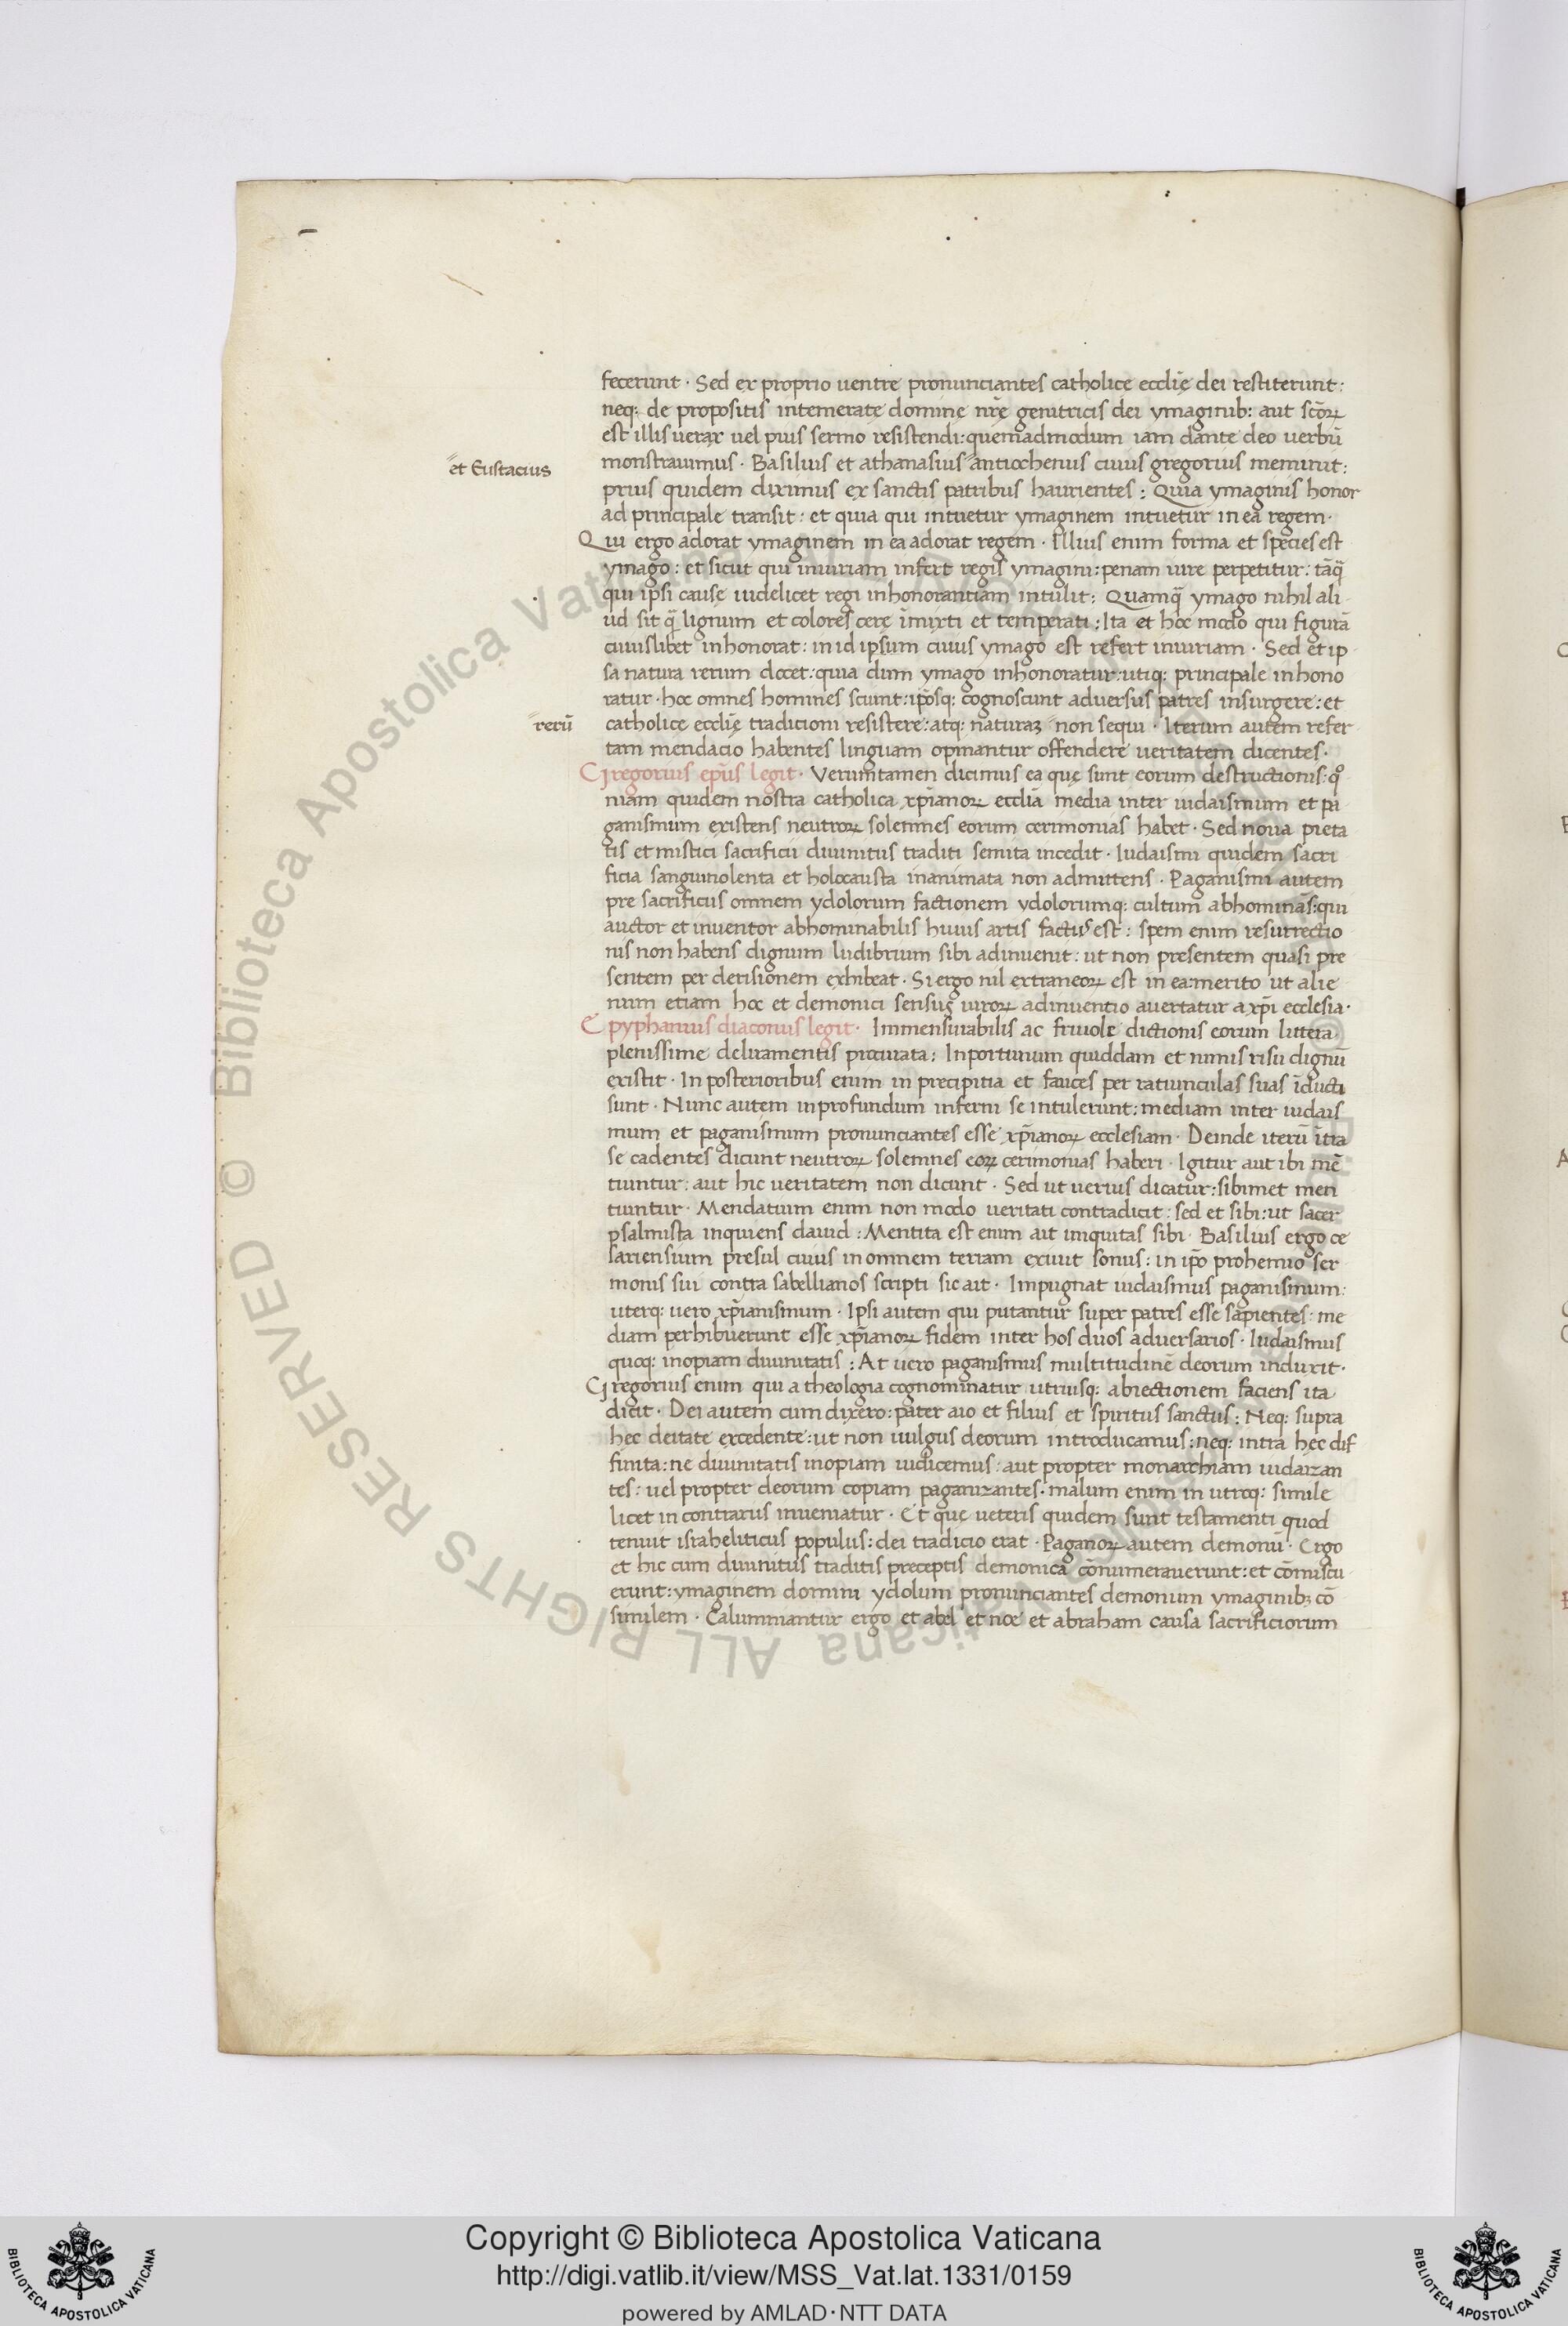 fecerunt · Sed ex proprio uentre pronunciantes catholice ecclīę dei restiterunt :
neq; de propositis intemerate domine nr̄ę genitricis dei ymaginib: aut sc̄oꝝ
est illis uerax uel pius sermo resistendi : quemadmodum iam dante deo uerbū
et Eustacius
monstrauimus · Basilius et athanasius ″antiochenus cuius gregorius meminit :
prius quidem diximus ex sanctis patribus haurientes : Quia ymaginis honor
ad principale transit : et quia qui intuetur ymaginem intuetur in ea regem ·
Qui ergo adorat ymaginem in ea adorat regem · Illius enim forma et species est
ymago : et sicut qui iniuriam infert regis ymagini : penam iure perpetitur : tāq̄
qui ipsi cause uidelicet regi inhonorantiam intulit : Quamq̄ ymago nihil ali
ud sit q̄ lignum et colores cere īmixti et temperati : Ita et hoc modo qui figurā
cuiuslibet inhonorat : in id ipsum cuius ymago est refert iniuriam · Sed et ip
sa natura rerum docet : quia dum ymago inhonoratur : utiq; principale inhono
ratur · hoc omnes homines sciunt : ip̄osq; cognoscunt aduersus patres insurgere : et
rerū
catholice ecclīę tradicioni resistere : atq; naturaꝫ ″non sequi · Iterum autem refer
tam mendacio habentes linguam opinantur offendere ueritatem dicentes ·
Gregorius ep̄us legit · Verumtamen dicimus ea que sunt eorum destructionis : qͦ
niam quidem nostra catholica xp̄ianoꝝ ecclīa media inter iudaismum et pa
ganismum existens neutroꝝ solemnes eorum cerimonias habet · Sed noua pieta
tis et mistici sacrificii diuinitus traditi semita incedit · Iudaismi quidem sacri
ficia sanguinolenta et holocausta inanimata non admittens · Paganismi autem
pre sacrificiis omnem ydolorum factionem ydolorumq; cultum abhominās : qui
auctor et inuentor abhominabilis huius artis factus est : spem enim resurrectio
nis non habens dignum ludibrium sibi adinuenit : ut non presentem quasi pre
sentem per derisionem exhibeat · Si ergo nil extraneoꝝ est in ea : merito ut alie
num etiam hoc et demonici sensus uiroꝝ adinuentio auertatur a xp̄i ecclesia ·
Epyphanius diaconus legit · Immensuiabilis ac friuole dictionis eorum littera
plenissime deliramentis procurata : Inportunum quiddam et nimis risu dignū
existit · In posterioribus enim in precipitia et fauces per ratiunculas suas īducti
sunt · Nunc autem in profundum inferni se intulerunt : mediam inter iudais
mum et paganismum pronunciantes esse xp̄ianoꝝ ecclesiam · Deinde iterū ītra
se cadentes dicunt neutroꝝ solemnes eoꝝ cerimonias haberi · Igitur aut ibi mē
tiuntur : aut hic ueritatem non dicunt · Sed ut uerius dicatur : sibimet men
tiuntur · Mendatium enim non modo ueritati contradicit : sed et sibi : ut sacer
psalmista inquiens dauid : Mentita est enim ait iniquitas sibi · Basilius ergo ce
sariensium presul cuius in omnem terram exiuit sonus : in ip̄o prohemio ser
monis sui contra sabellianos scripti sic ait · Impugnat iudaismus paganismum :
uterq; uero xp̄ianismum · Ipsi autem qui putantur super patres esse sapientes : me
diam perhibuerunt esse xp̄ianoꝝ fidem inter hos duos aduersarios · Iudaismus
quoq; inopiam diuinitatis : At uero paganismus multitudinē deorum induxit ·
Gregorius enim qui a theologia cognominatur utriusq; abiectionem faciens ita
dicit · Dei autem cum dixero : pater aio et filius et spiritus sanctus : Neq; supra
hec deitate excedente : ut non uulgus deorum introducamus : neq; intra hec dif
finita : ne diuinitatis inopiam iudicemus : aut propter monarchiam iudaizan
tes : uel propter deorum copiam paganizantes · malum enim in utroq; simile
licet in contrariis inueniatur · Et que ueteris quidem sunt testamenti quod
tenuit israheliticus populus : dei tradicio erat · Paganoꝝ autem demonū · Ergo
et hic cum diuinitus traditis preceptis demonica cōnumerauerunt : et cōmiscu
erunt : ymaginem domini ydolum pronunciantes demonum ymaginibꝫ cō
similem · Calumniantur ergo et abel et noe et abraham causa sacrificiorum
Copyright © Biblioteca Apostolica Vaticana
http://digi.vatlib.it/view/MSS_Vat.lat.1331/0159
powered by AMLAD · NTT DATA